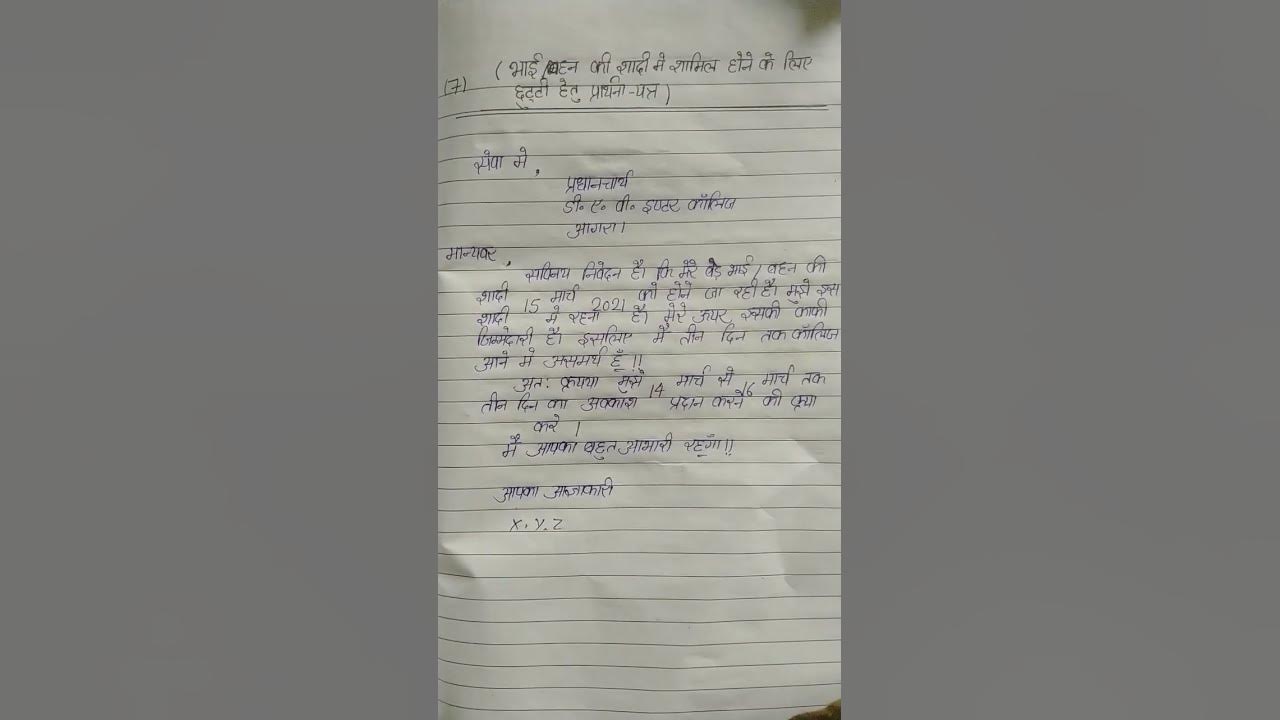 (7) ( भाई/बहन की शादी मे शामिल होने के लिए
छुट्टी हेतु प्रार्थना-पत्र )
सेवा मे ,
प्रधानचार्य
डी. ए. वी. इण्टर कॉलिज
आगरा।
मान्यवर ,
सविनय निवेदन है। कि मेरे बड़े भाई / बहन की
शादी 15 मार्च 2021 को होने जा रही है। मुझे इस
शादी मे रहना है। मेरे ऊपर इसकी काफी
जिम्मेदारी है। इसलिए मैं तीन दिन तक कॉलिज
आने मे असमर्थ हूँ !!
अत: कृपया मुझे 14 मार्च से 16 मार्च तक
तीन दिन का अवकाश प्रदान करने की कृपा
करे ।
मैं आपका बहुत आभारी रहूँगा!!
आपका आज्ञाकारी
X. Y. Z